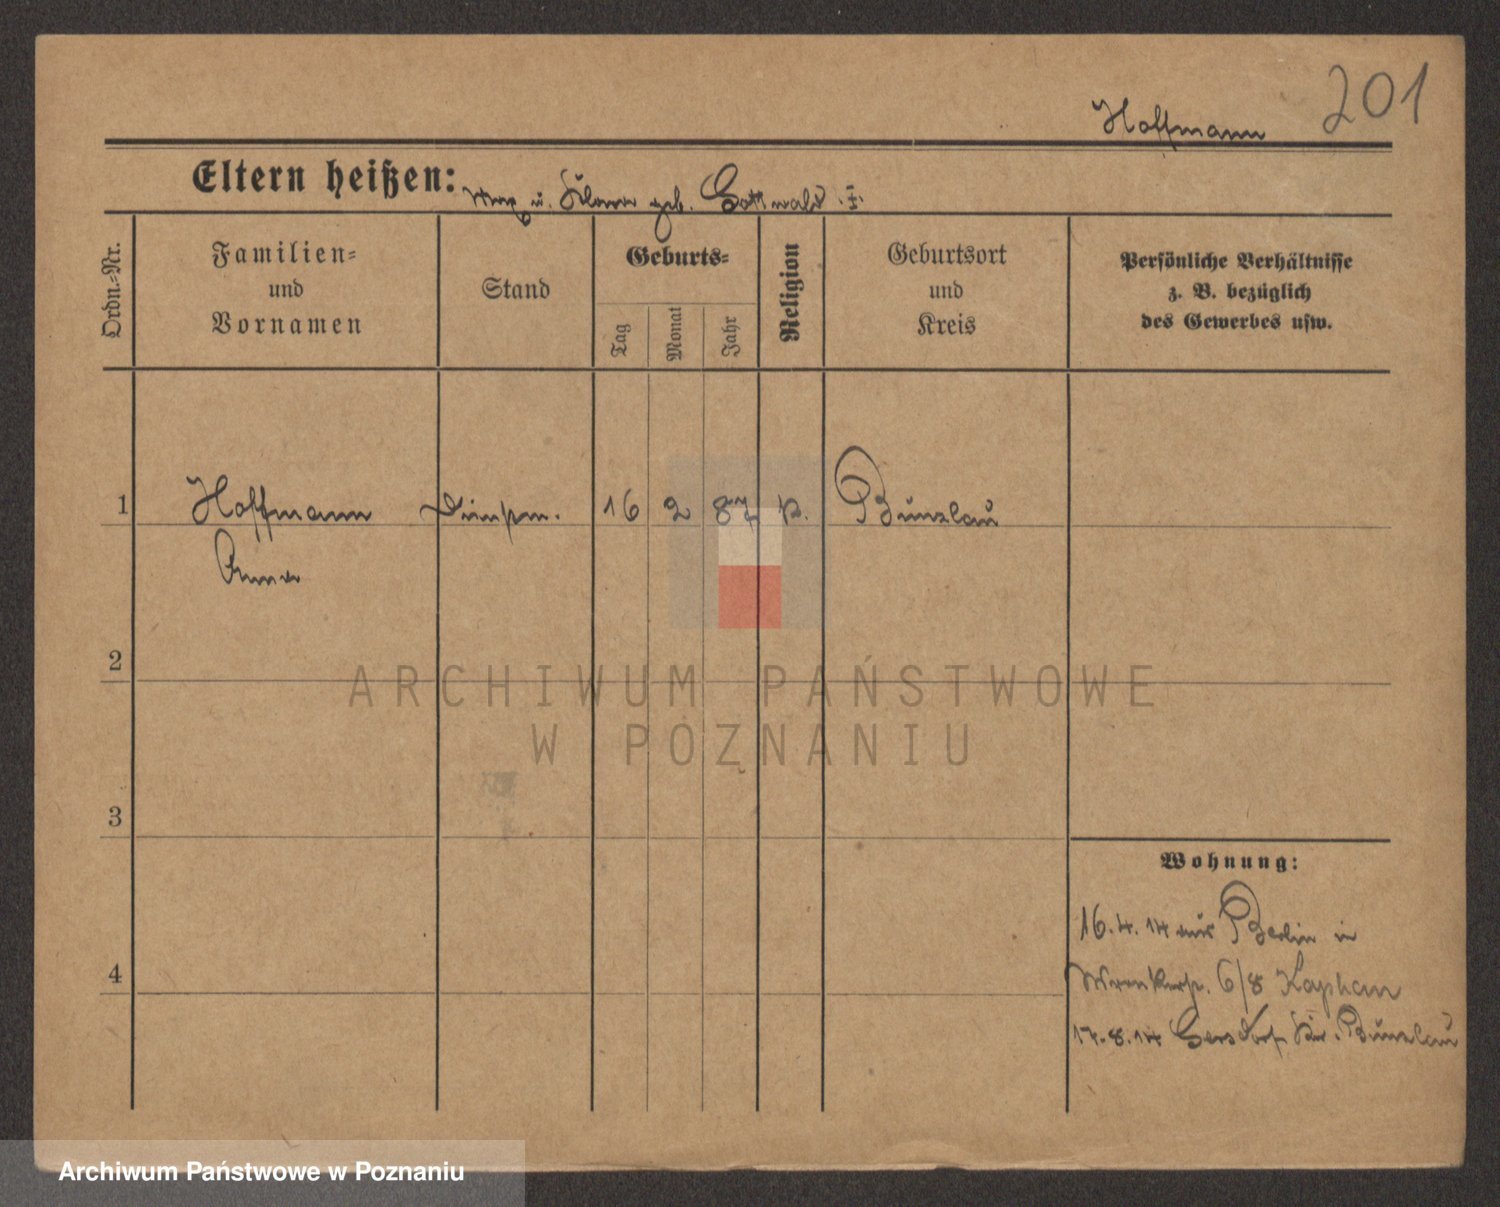 201
Hoffmann
Eltern heißen: u. geb. Gottwald
Ordn.-Nr.
Familien-
und
Vornamen
Stand
Geburts-
Tag
Monat
Jahr
Religion
Geburtsort
und
Kreis
Persönliche Verhältnisse
z. B. bezüglich
des Gewerbes usw.
1 Hoffmann 16 2 87 Bunzlau
Anna
2
3
4
Wohnung:
16.4.14 aus Berlin in
6/8 Kaphan
17.8.14 Gersdorf Kr. Bunzlau
ARCHIWUM PAŃSTWOWE
W POZNANIU
Archiwum Państwowe w Poznaniu